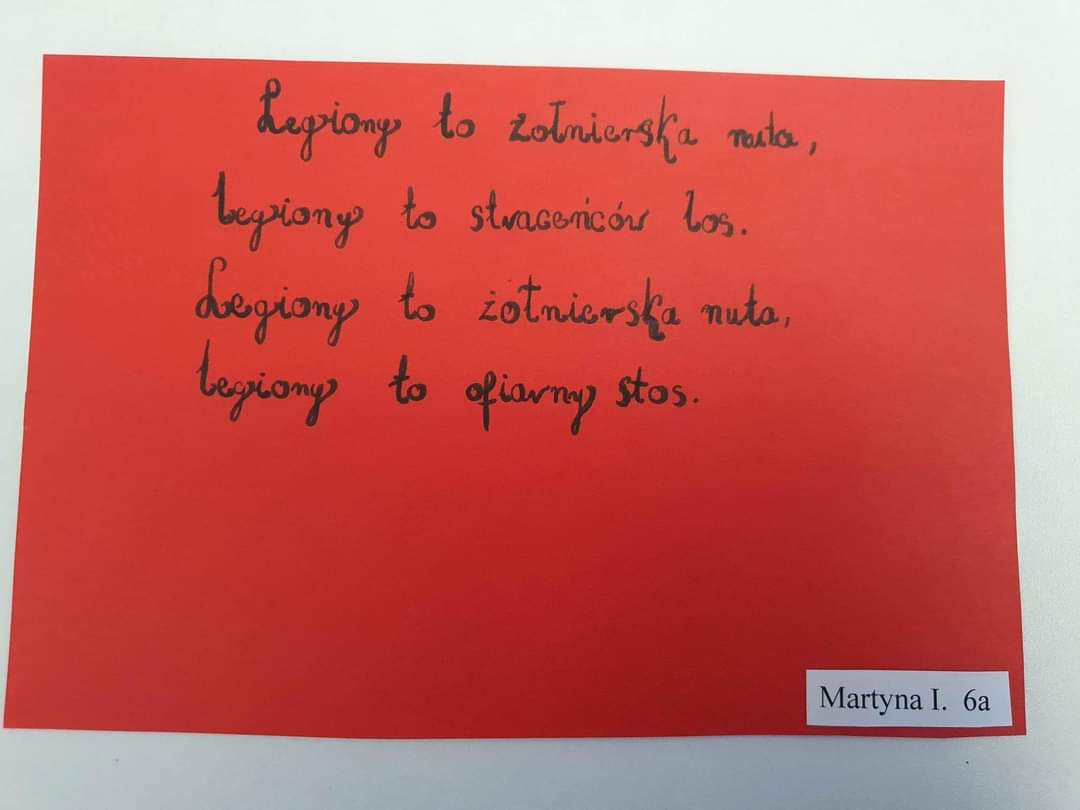 Legiony to żołnierska nuta,
legiony to straceńców los.
Legiony to żołnierska nuta,
legiony to ofiarny stos.
Martyna I. 6a